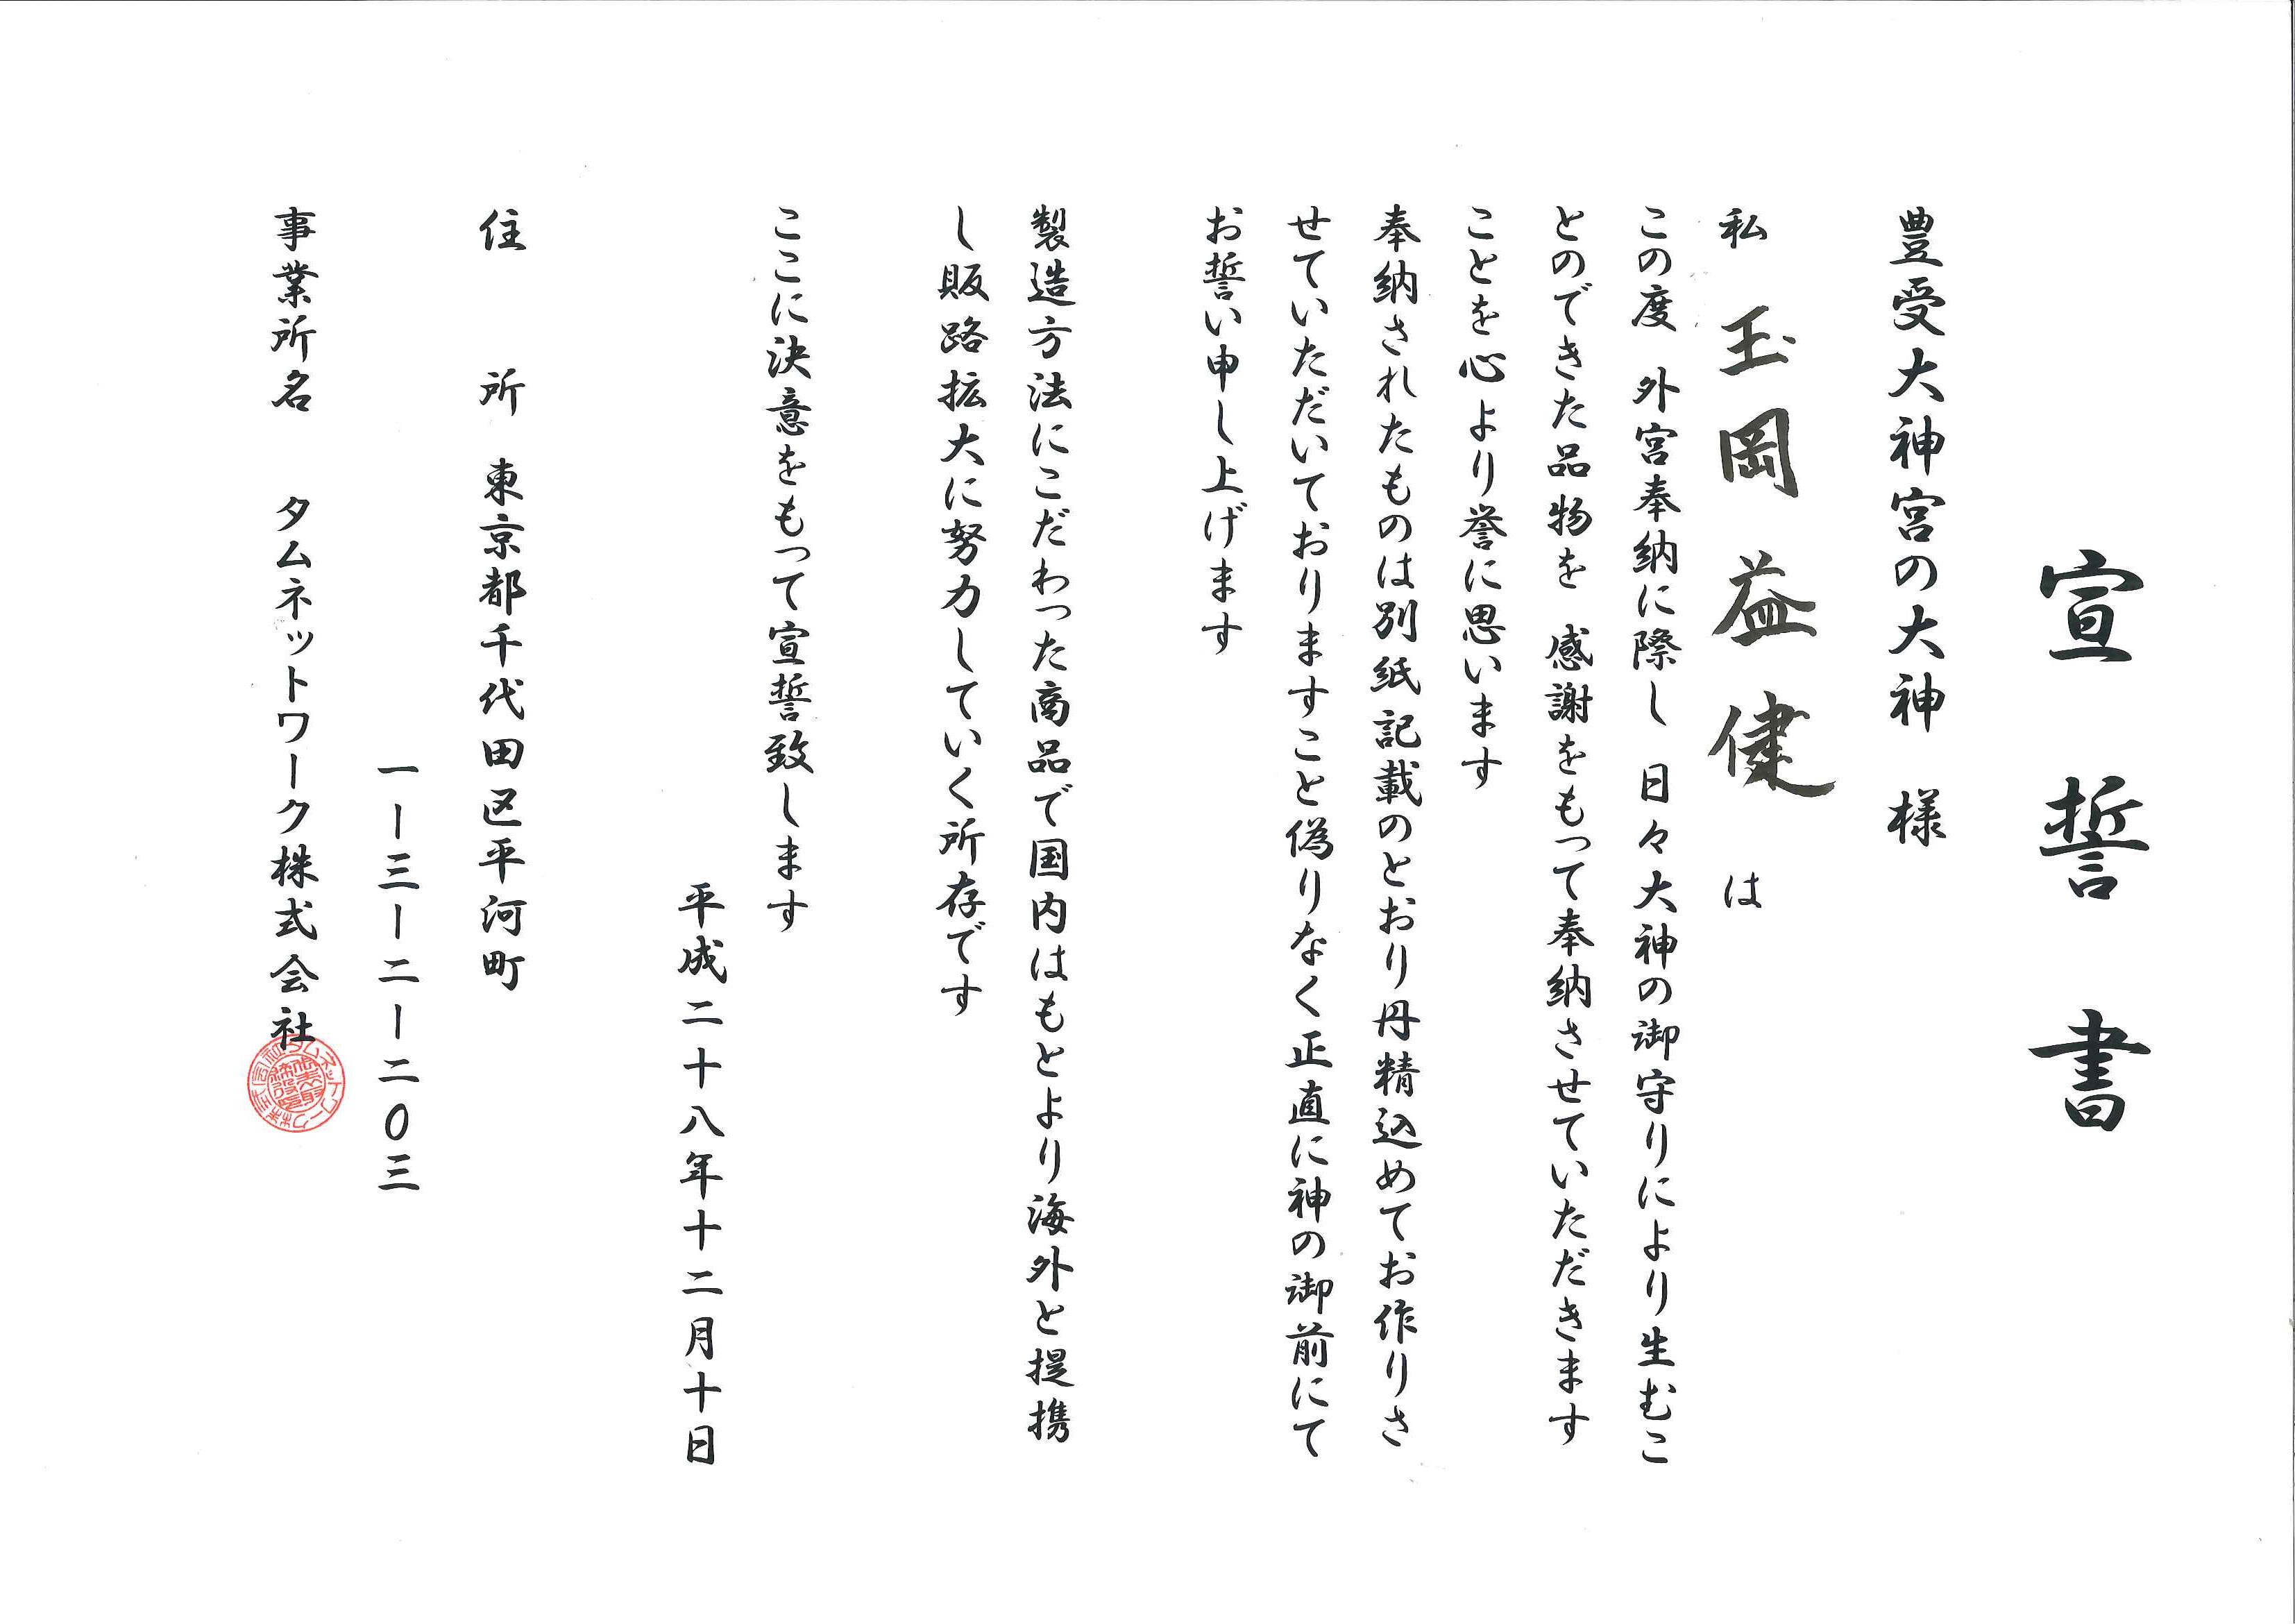 宣誓書
豊受大神宮の大神 様
私 玉岡益健 は
この度 外宮奉納に際し 日々大神の御守りにより生むこ
とのできた品物を 感謝をもって奉納させていただきます
ことを心より誉に思います
奉納されたものは別紙記載のとおり丹精込めてお作りさ
せていただいておりますこと偽りなく正直に神の御前にて
お誓い申し上げます
製造方法にこだわった商品で国内はもとより海外と提携
し販路拡大に努力していく所存です
ここに決意をもって宣誓致します
平成二十八年十二月十日
住 所 東京都千代田区平河町
一ー三ー二ー二〇三
事業所名 タムネットワーク株式会社